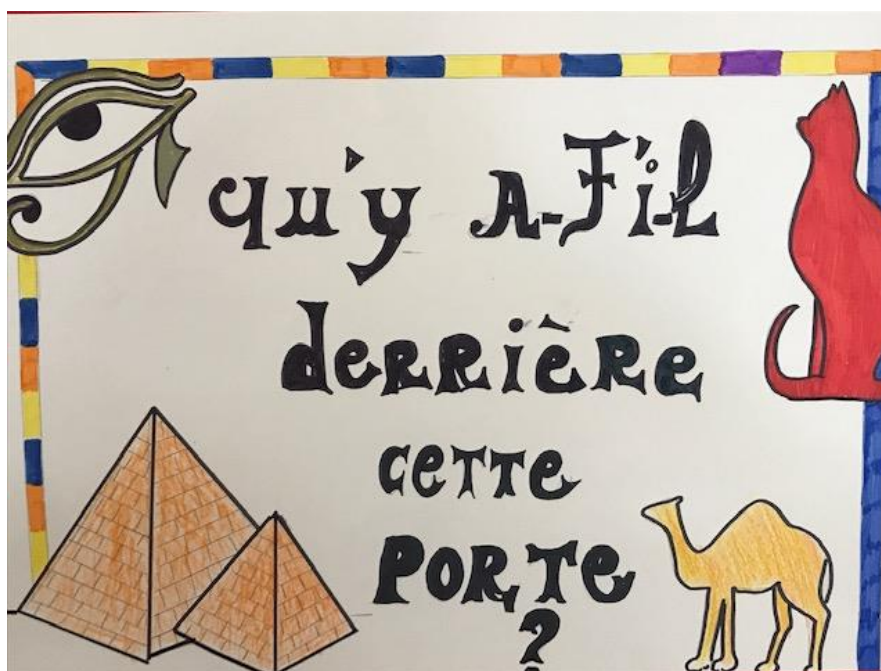 qu'y A-T'i-l
derrière
cette
PORTe
?